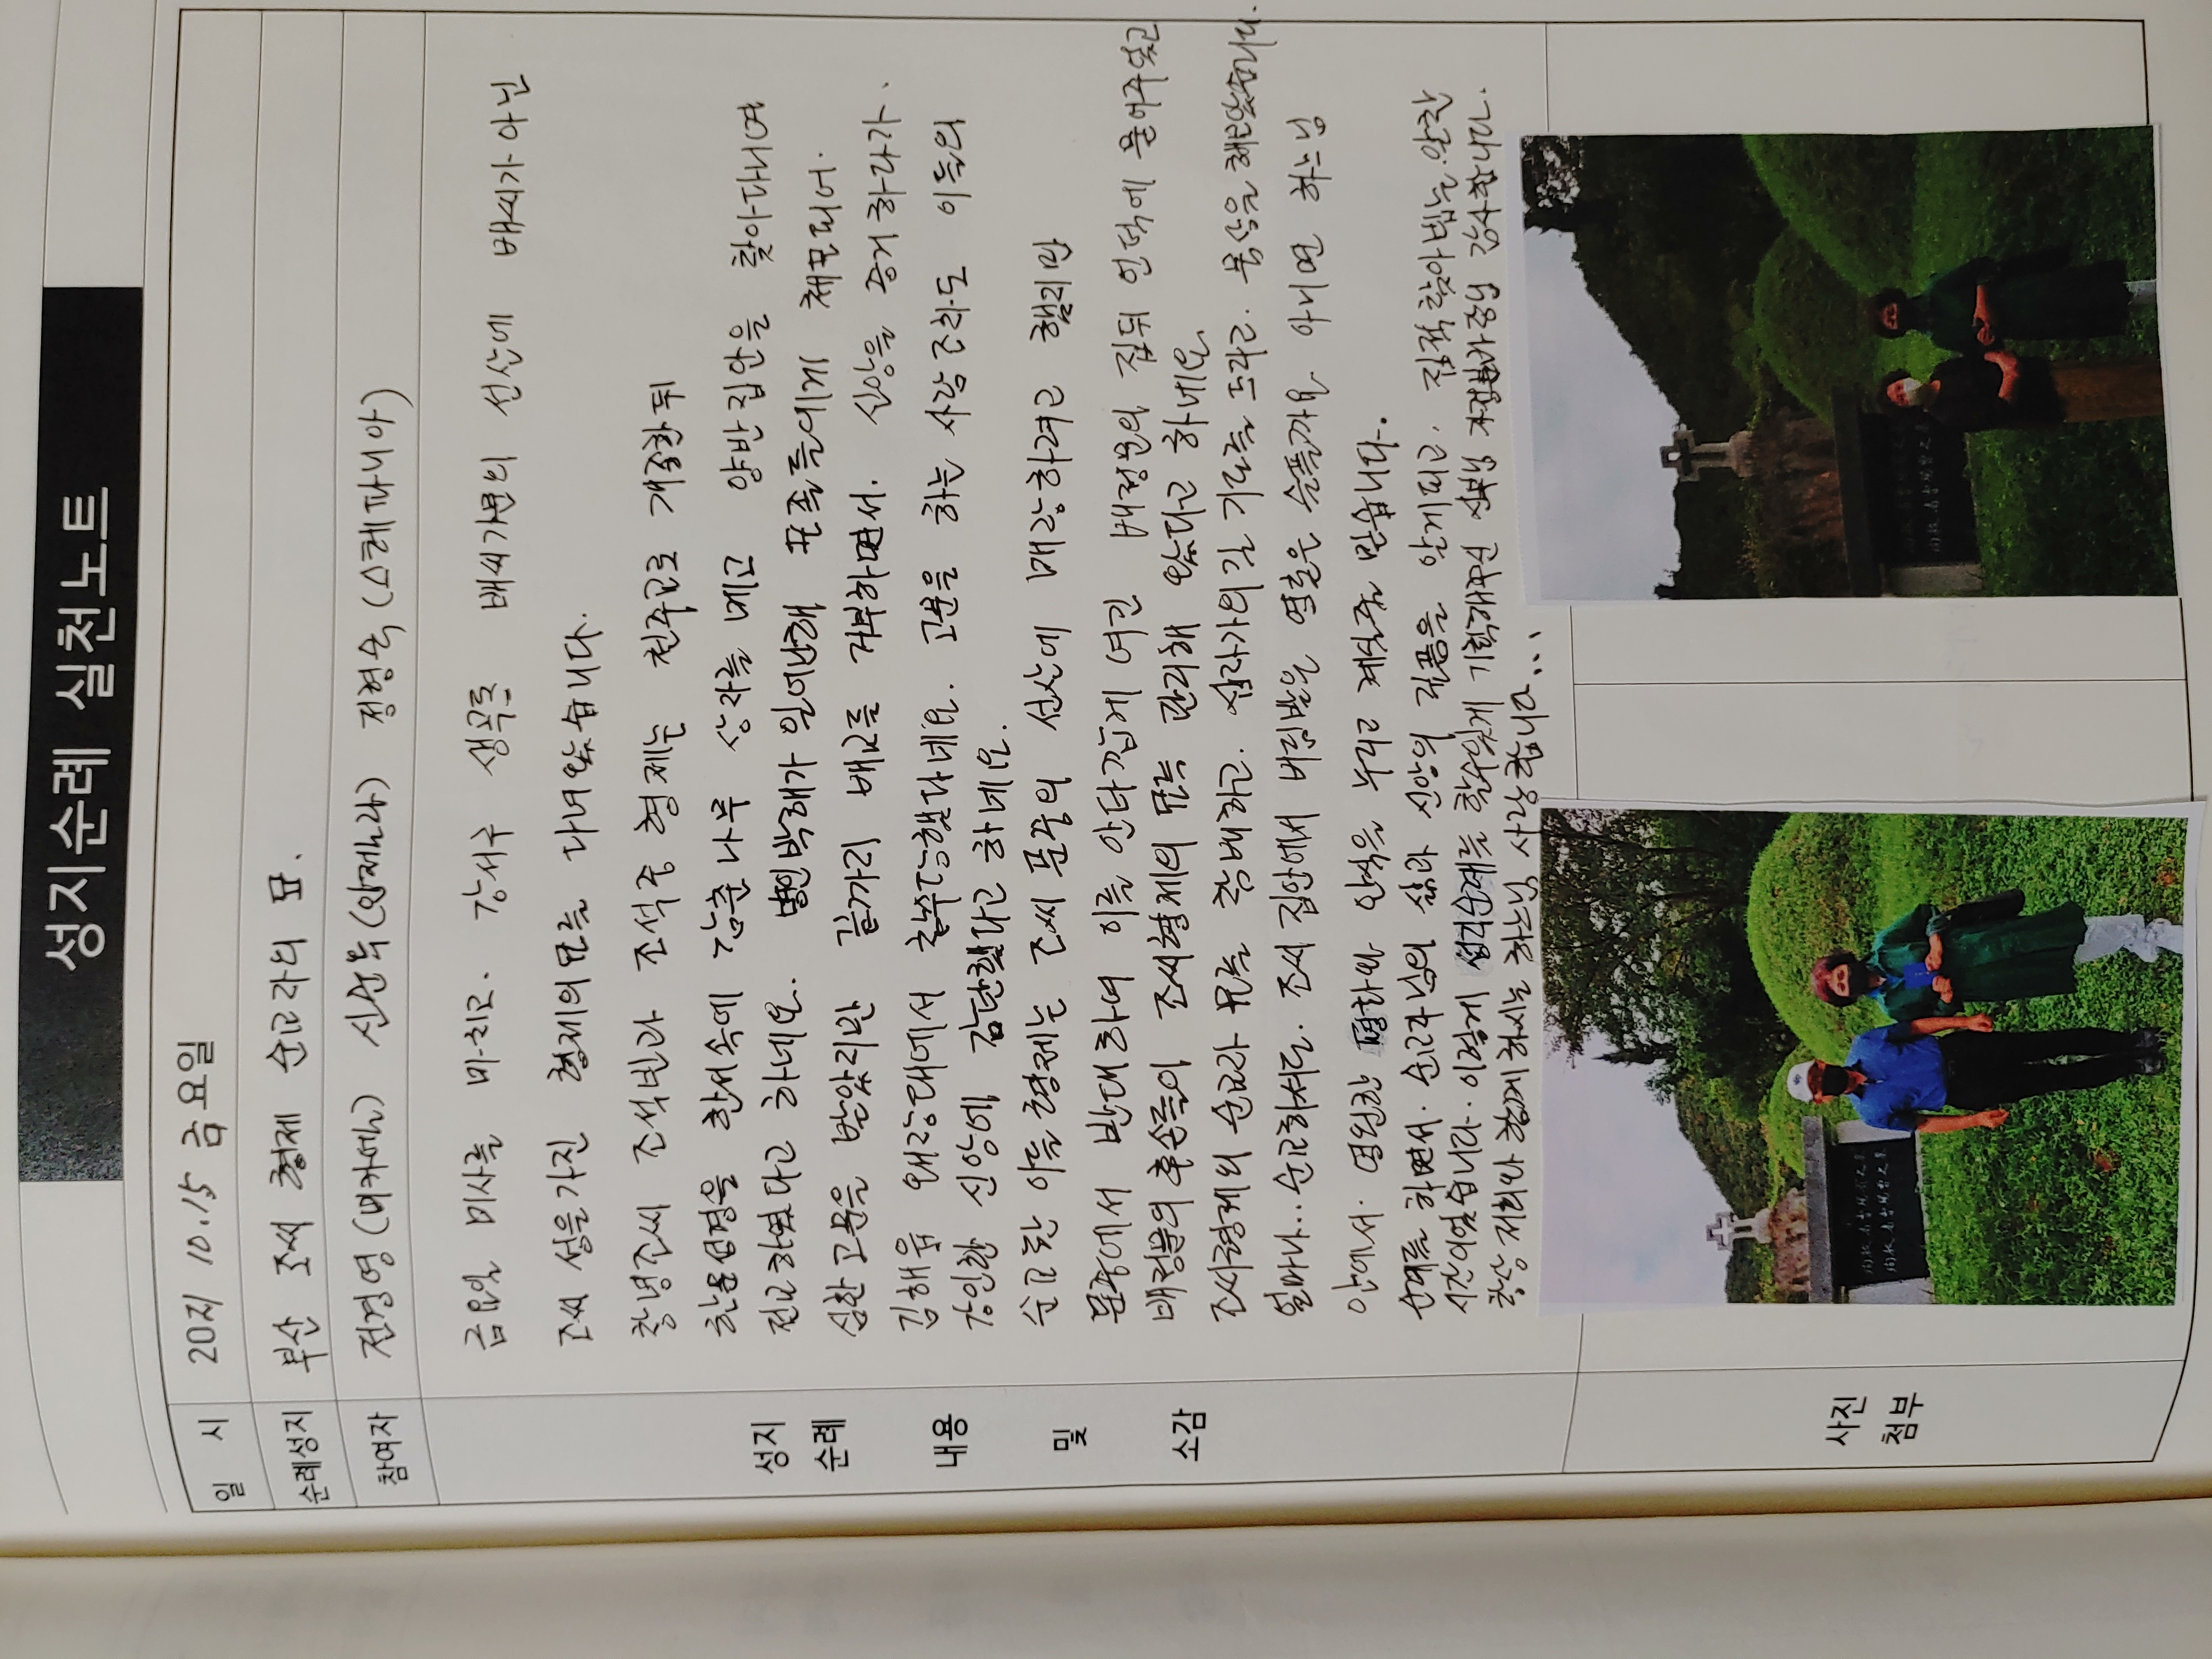 성지순례 실천노트
일 시 20지 10.15 금요일
순례성지 부산 조씨 형제 순교자의 묘.
참여자 전경영 (비카에르) 신순두 (안젤라) 정정숙 (스테파니아)
성지 순례 내용 및 소감
금요일 미사를 마치고. 강서구 생곡로 배씨가문의 선산에 배씨가 아닌
조씨 성을가진 형제의묘를 다녀왔습니다.
창녕조씨 조석빈과 조석증 형제는 천주교로 개종한뒤
한문성경을 한세속에 감춘나무 상자를 메고 양반집안을 찾아다니며
전교하였다고 하네요. 병인박해가 일어난해 포졸들에게 체포되어.
심한고문을 받았지만 끝가지 배교를 거부하면서. 신앙을 증거하다가.
김해읍 왜장대에서 참수당했다네요. 고문을 하는 사람조차도 이들의
강인한 신앙에 감탄했다고 하네요.
순교한 이들형제는 조씨 문중의 선산에 매장하려고 했지만
문중에서 반대하여 이를 안타깝게 여긴 배정문의 집뒤 언덕에 묻어주었고
배정문의 후손들이 조씨형제의 묘는 관리해 왔다고 하네요.
조씨형제의 순교자 묘를 참배하고. 십자가의길 기도를 드리고. 묵상을 해보았습니다.
얼마나... 순교하셔도. 조씨 집안에서 버림받은 영혼은 슬플가요 아니면 하느님
안에서. 영원한 평화와 안식을 누리고 계신줄 믿습니다.
순례를 하면서. 순교자님의 삶과 신앙의 깊음을 알게되고. 진작 찾아뵙는 알찬
시간이었습니다. 이렇게 성지순례를 할수있게 기획해주신 신부님 감사합니다.
항상 저희와 함께하시는 하느님 사랑합니다...
사진 첨부